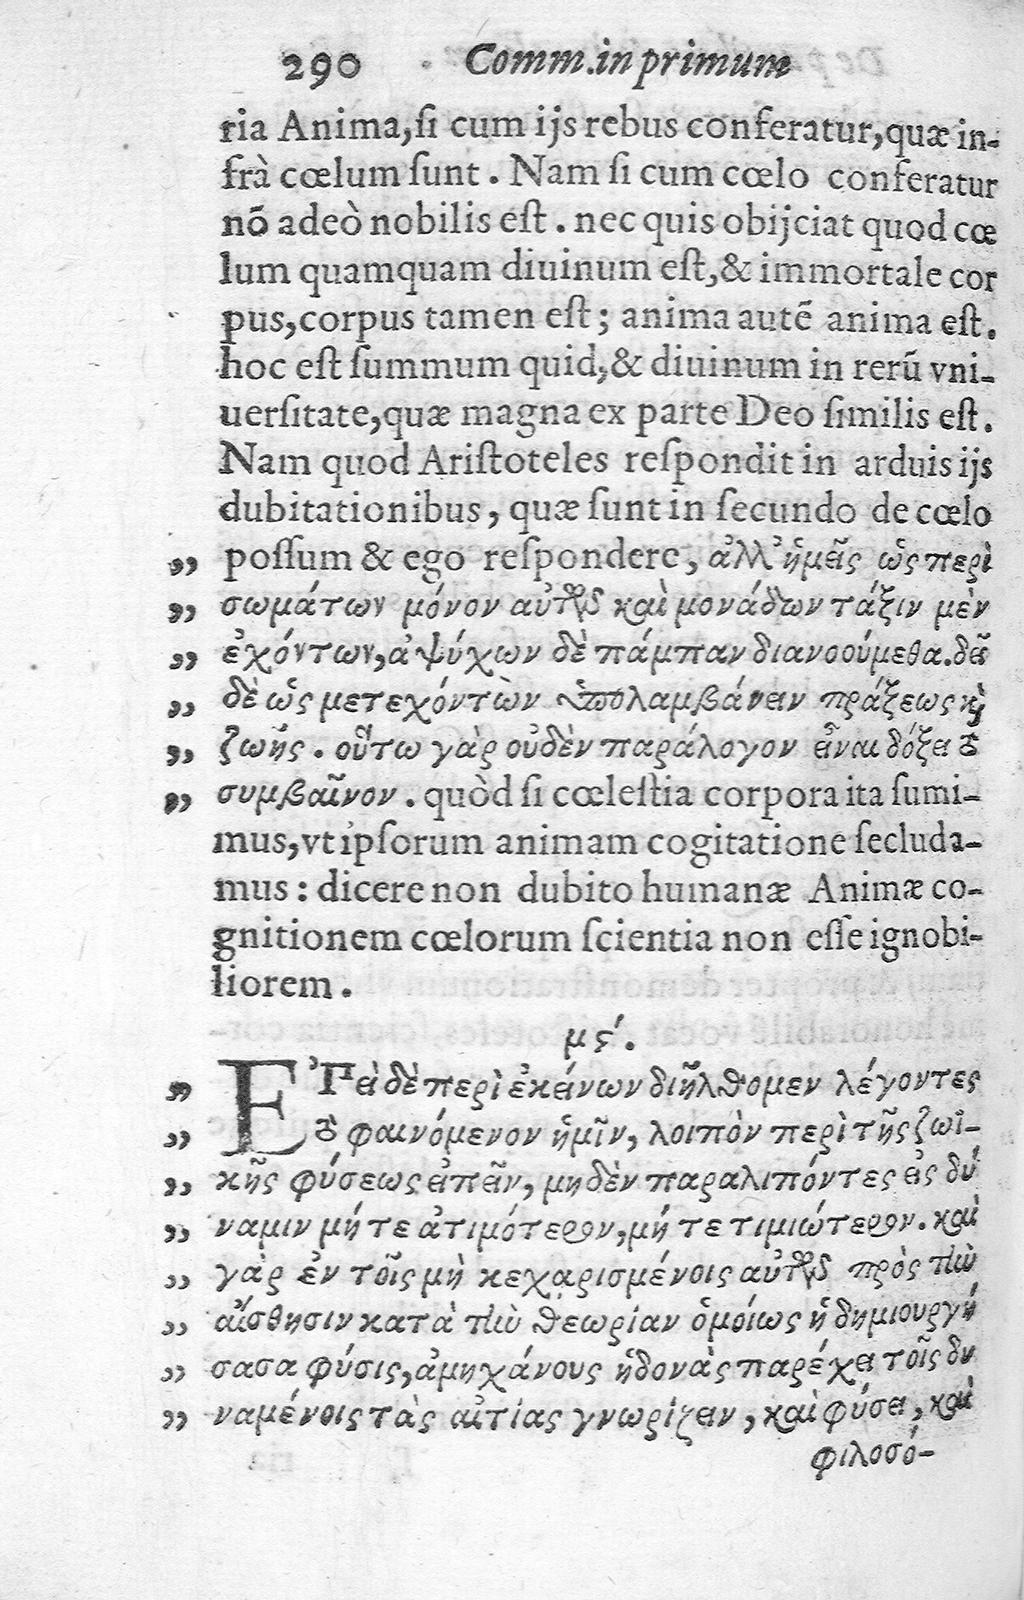 290 Comm. in primum
ria Anima, ſi cum ijs rebus conferatur, quæ in-
frà cœlum ſunt. Nam ſi cum cœlo conferatur
nō adeò nobilis eſt. nec quis obijciat quod cœ
lum quamquam diuinum eſt, & immortale cor
pus, corpus tamen eſt; anima autē anima eſt.
hoc eſt ſummum quid, & diuinum in rerū vni-
uerſitate, quæ magna ex parte Deo ſimilis eſt.
Nam quod Ariſtoteles reſpondit in arduis ijs
dubitationibus, quæ ſunt in ſecundo de cœlo
„ poſſum & ego reſpondere, ἀλλ' ἡμεῖς ὡς περὶ
„ σωμάτων μόνον αὐτῶν καὶ μονάδων τάξιν μὲν
„ ἐχόντων, ἀψύχων δὲ πάμπαν διανοούμεθα. δεῖ
„ δὲ ὡς μετεχόντων ὑπολαμβάνειν πράξεως καὶ
„ ζωῆς. οὕτω γὰρ οὐδὲν παράλογον εἶναι δόξει τὸ
„ συμβαῖνον. quòd ſi cœleſtia corpora ita ſumi-
mus, vt ipſorum animam cogitatione ſecluda-
mus: dicere non dubito humanæ Animæ co-
gnitionem cœlorum ſcientia non eſſe ignobi-
liorem.
μϛ´.
„ ΕΠεὶ δὲ περὶ ἐκείνων διήλθομεν λέγοντες
„ τὸ φαινόμενον ἡμῖν, λοιπὸν περὶ τῆς ζωϊ-
„ κῆς φύσεως εἰπεῖν, μηδὲν παραλιπόντες εἰς δύ
„ ναμιν μήτε ἀτιμότερον, μήτε τιμιώτερον. καὶ
„ γὰρ ἐν τοῖς μὴ κεχαρισμένοις αὐτῶν πρὸς τὴν
„ αἴσθησιν κατὰ τὴν θεωρίαν ὁμοίως ἡ δημιουργή
„ σασα φύσις, ἀμηχάνους ἡδονὰς παρέχει τοῖς δυ
„ ναμένοις τὰς αἰτίας γνωρίζειν, καὶ φύσει, καὶ
φιλοσό-